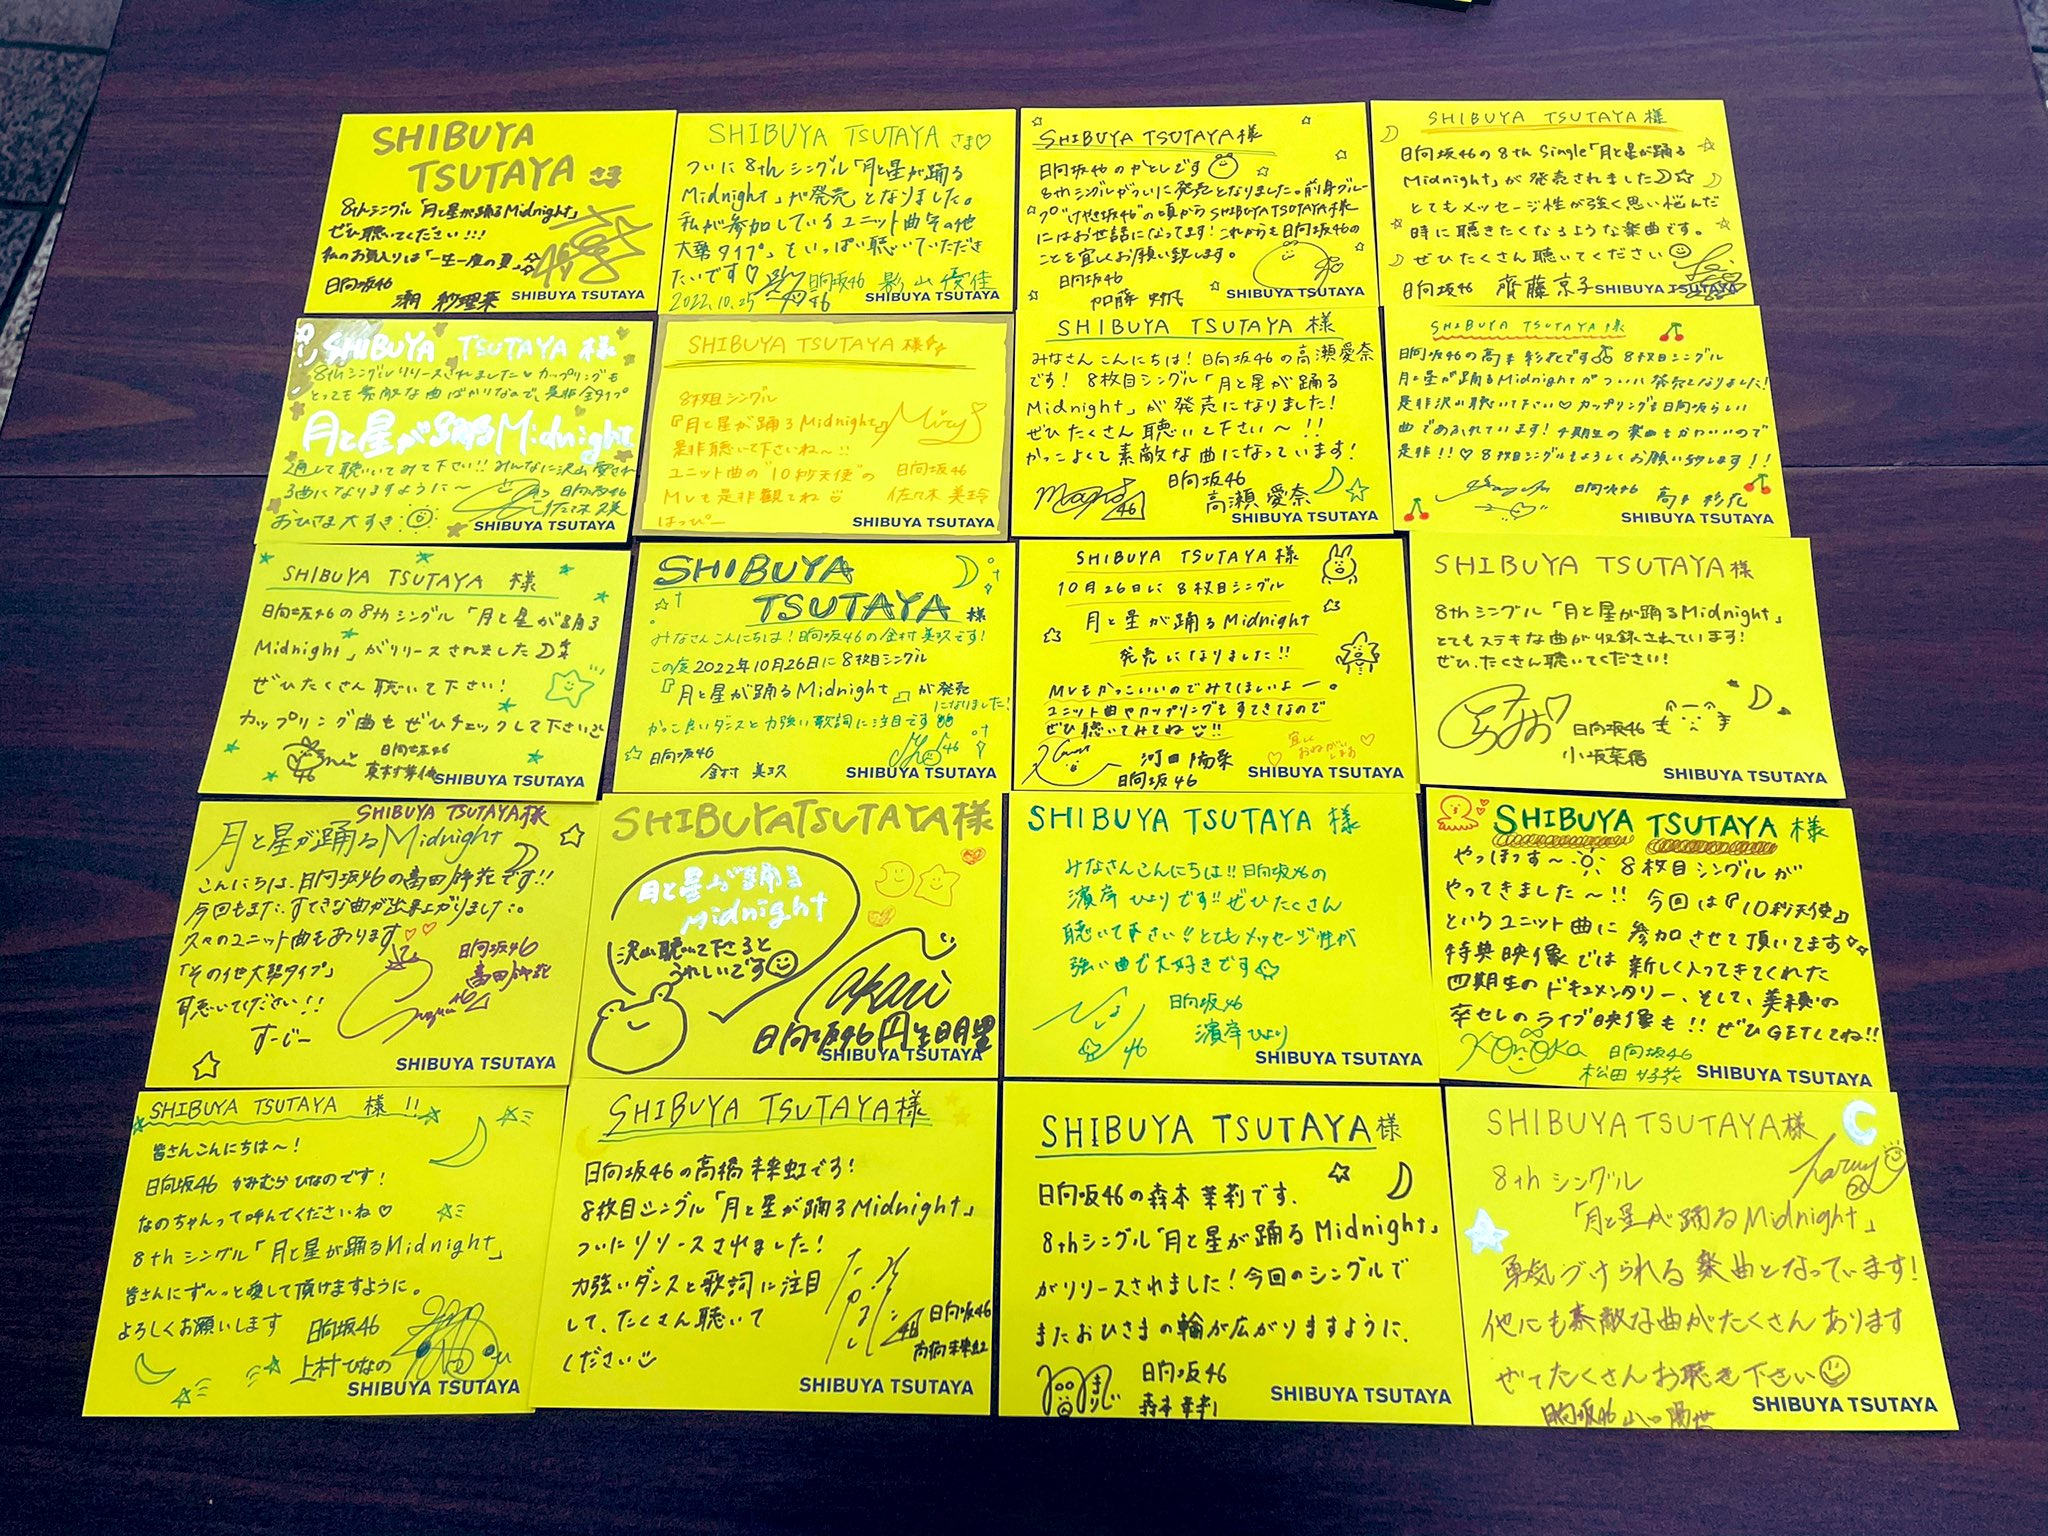 SHIBUYA
TSUTAYA さま
8thシングル「月と星が踊るMidnight」
ぜひ聴いてください!!!
私のお気入りは「一生一度の夏」
日向坂46
潮 紗理菜
SHIBUYA TSUTAYA
SHIBUYA TSUTAYA さま♡
ついに8thシングル「月と星が踊る
Midnight」が発売となりました。
私が参加しているユニット曲その他
大勢タイプ」もいっぱい聴いていただき
たいです♡
日向坂46 影山優佳
2022.10.25
SHIBUYA TSUTAYA
SHIBUYA TSUTAYA様
日向坂46のかとしです
8thシングルがついに発売となりました。前身グルー
プ"けやき坂46"の頃からSHIBUYA TSUTAYA様
にはお世話になってます!これからも日向坂46の
ことを宜しくお願い致します。
日向坂46
加藤 史帆
SHIBUYA TSUTAYA
SHIBUYA TSUTAYA 様
日向坂46の8th Single「月と星が踊る
Midnight」が発売されました☆
とてもメッセージ性が強く思い悩んだ
時に聴きたくなるような楽曲です。
ぜひたくさん聴いてください
日向坂46 齊藤 京子
SHIBUYA TSUTAYA
SHIBUYA TSUTAYA 様
8thシングルリリースされました カップリングも
とっても素敵な曲ばかりなので、是非全タイプ
月と星が踊るMidnight
通して聴いてみて下さい!!みんなに沢山愛され
る曲になりますように〜
日向坂46
おひさま大すき
SHIBUYA TSUTAYA
SHIBUYA TSUTAYA 様
8枚目シングル
『月と星が踊るMidnight』
是非聴いて下さいね〜!!
ユニット曲の"10秒天使"の
MVも是非観てね
はっぴー
日向坂46
佐々木 美玲
SHIBUYA TSUTAYA
SHIBUYA TSUTAYA 様
みなさんこんにちは! 日向坂46の高瀬愛奈
です! 8枚目シングル「月と星が踊る
Midnight」が発売になりました!
ぜひたくさん聴いて下さい〜!!
かっこよくて素敵な曲になっています!
日向坂46
高瀬 愛奈
SHIBUYA TSUTAYA
SHIBUYA TSUTAYA 様
日向坂46の髙本彩花です 8枚目シングル
月と星が踊るMidnightがついに発売となりました!
是非沢山聴いて下さい♡カップリングも日向坂らしい
曲であふれています!4期生の楽曲もかわいいので
是非!!♡8枚目シングルもよろしくお願い致します!!
日向坂46 髙本 彩花
SHIBUYA TSUTAYA
SHIBUYA TSUTAYA 様
日向坂46の8thシングル「月と星が踊る
Midnight」がリリースされました
ぜひたくさん聴いて下さい!
カップリング曲もぜひチェックして下さい
日向坂46
東村芽依
SHIBUYA TSUTAYA
SHIBUYA
TSUTAYA 様
みなさんこんにちは!日向坂46の金村美玖です!
この度2022年10月26日に8枚目シングル
『月と星が踊るMidnight』が発売
になりました!
かっこ良いダンスと力強い歌詞に注目です
日向坂46
金村 美玖
SHIBUYA TSUTAYA
SHIBUYA TSUTAYA 様
10月26日に8枚目シングル
月と星が踊るMidnight
発売になりました!!
MVもかっこいいのでみてほしいよー。
ユニット曲やカップリングもすてきなので
ぜひ聴いてみてね!!
宜しく
おねがい
します
河田陽菜
日向坂46
SHIBUYA TSUTAYA
SHIBUYA TSUTAYA 様
8thシングル「月と星が踊るMidnight」
とてもステキな曲が収録されています!
ぜひ、たくさん聴いてください!
日向坂46
小坂菜緒
SHIBUYA TSUTAYA
SHIBUYA TSUTAYA様
月と星が踊るMidnight
こんにちは、日向坂46の富田鈴花です!!
今回もまた、すてきな曲が出来上がりました。
久々のユニット曲もあります♡♡
「その他大勢タイプ」
聴いてください!!
すーじー
日向坂46
富田鈴花
SHIBUYA TSUTAYA
SHIBUYA TSUTAYA様
月と星が踊る
Midnight
沢山聴いて下さると
うれしいです
akari
日向坂46 丹生明里
SHIBUYA TSUTAYA
SHIBUYA TSUTAYA 様
みなさんこんにちは!!日向坂46の
濱岸ひよりです!!ぜひたくさん
聴いて下さい!!とてもメッセージ性が
強い曲で大好きです
日向坂46
濱岸ひより
46
SHIBUYA TSUTAYA
SHIBUYA TSUTAYA 様
やっほっす〜 8枚目シングルが
やってきました〜!! 今回は『10秒天使』
というユニット曲に参加させて頂いてます
特典映像では新しく入ってきてくれた
四期生のドキュメンタリー、そして、美穂の
卒セレのライブ映像も!!ぜひGETしてね!!
KONOKA 日向坂46
松田 好花
SHIBUYA TSUTAYA
SHIBUYA TSUTAYA 様!!
皆さんこんにちは〜!
日向坂46 かみむらひなのです!
なのちゃんって呼んでくださいね♡
8thシングル「月と星が踊るMidnight」
皆さんにず〜っと愛して頂けますように。
よろしくお願いします
日向坂46
上村ひなの
SHIBUYA TSUTAYA
SHIBUYA TSUTAYA様
日向坂46の髙橋未来虹です!
8枚目シングル「月と星が踊るMidnight」
ついにリリースされました!
力強いダンスと歌詞に注目
して、たくさん聴いて
ください
日向坂46
髙橋未来虹
SHIBUYA TSUTAYA
SHIBUYA TSUTAYA様
日向坂46の森本茉莉です。
8thシングル「月と星が踊るMidnight」
がリリースされました!今回のシングルで
またおひさまの輪が広がりますように、
まりぃ
日向坂46
森本茉莉
SHIBUYA TSUTAYA
SHIBUYA TSUTAYA様
8thシングル
「月と星が踊るMidnight」
勇気づけられる楽曲となっています!
他にも素敵な曲がたくさんあります
ぜひたくさんお聴き下さい
日向坂46 山口陽世
SHIBUYA TSUTAYA